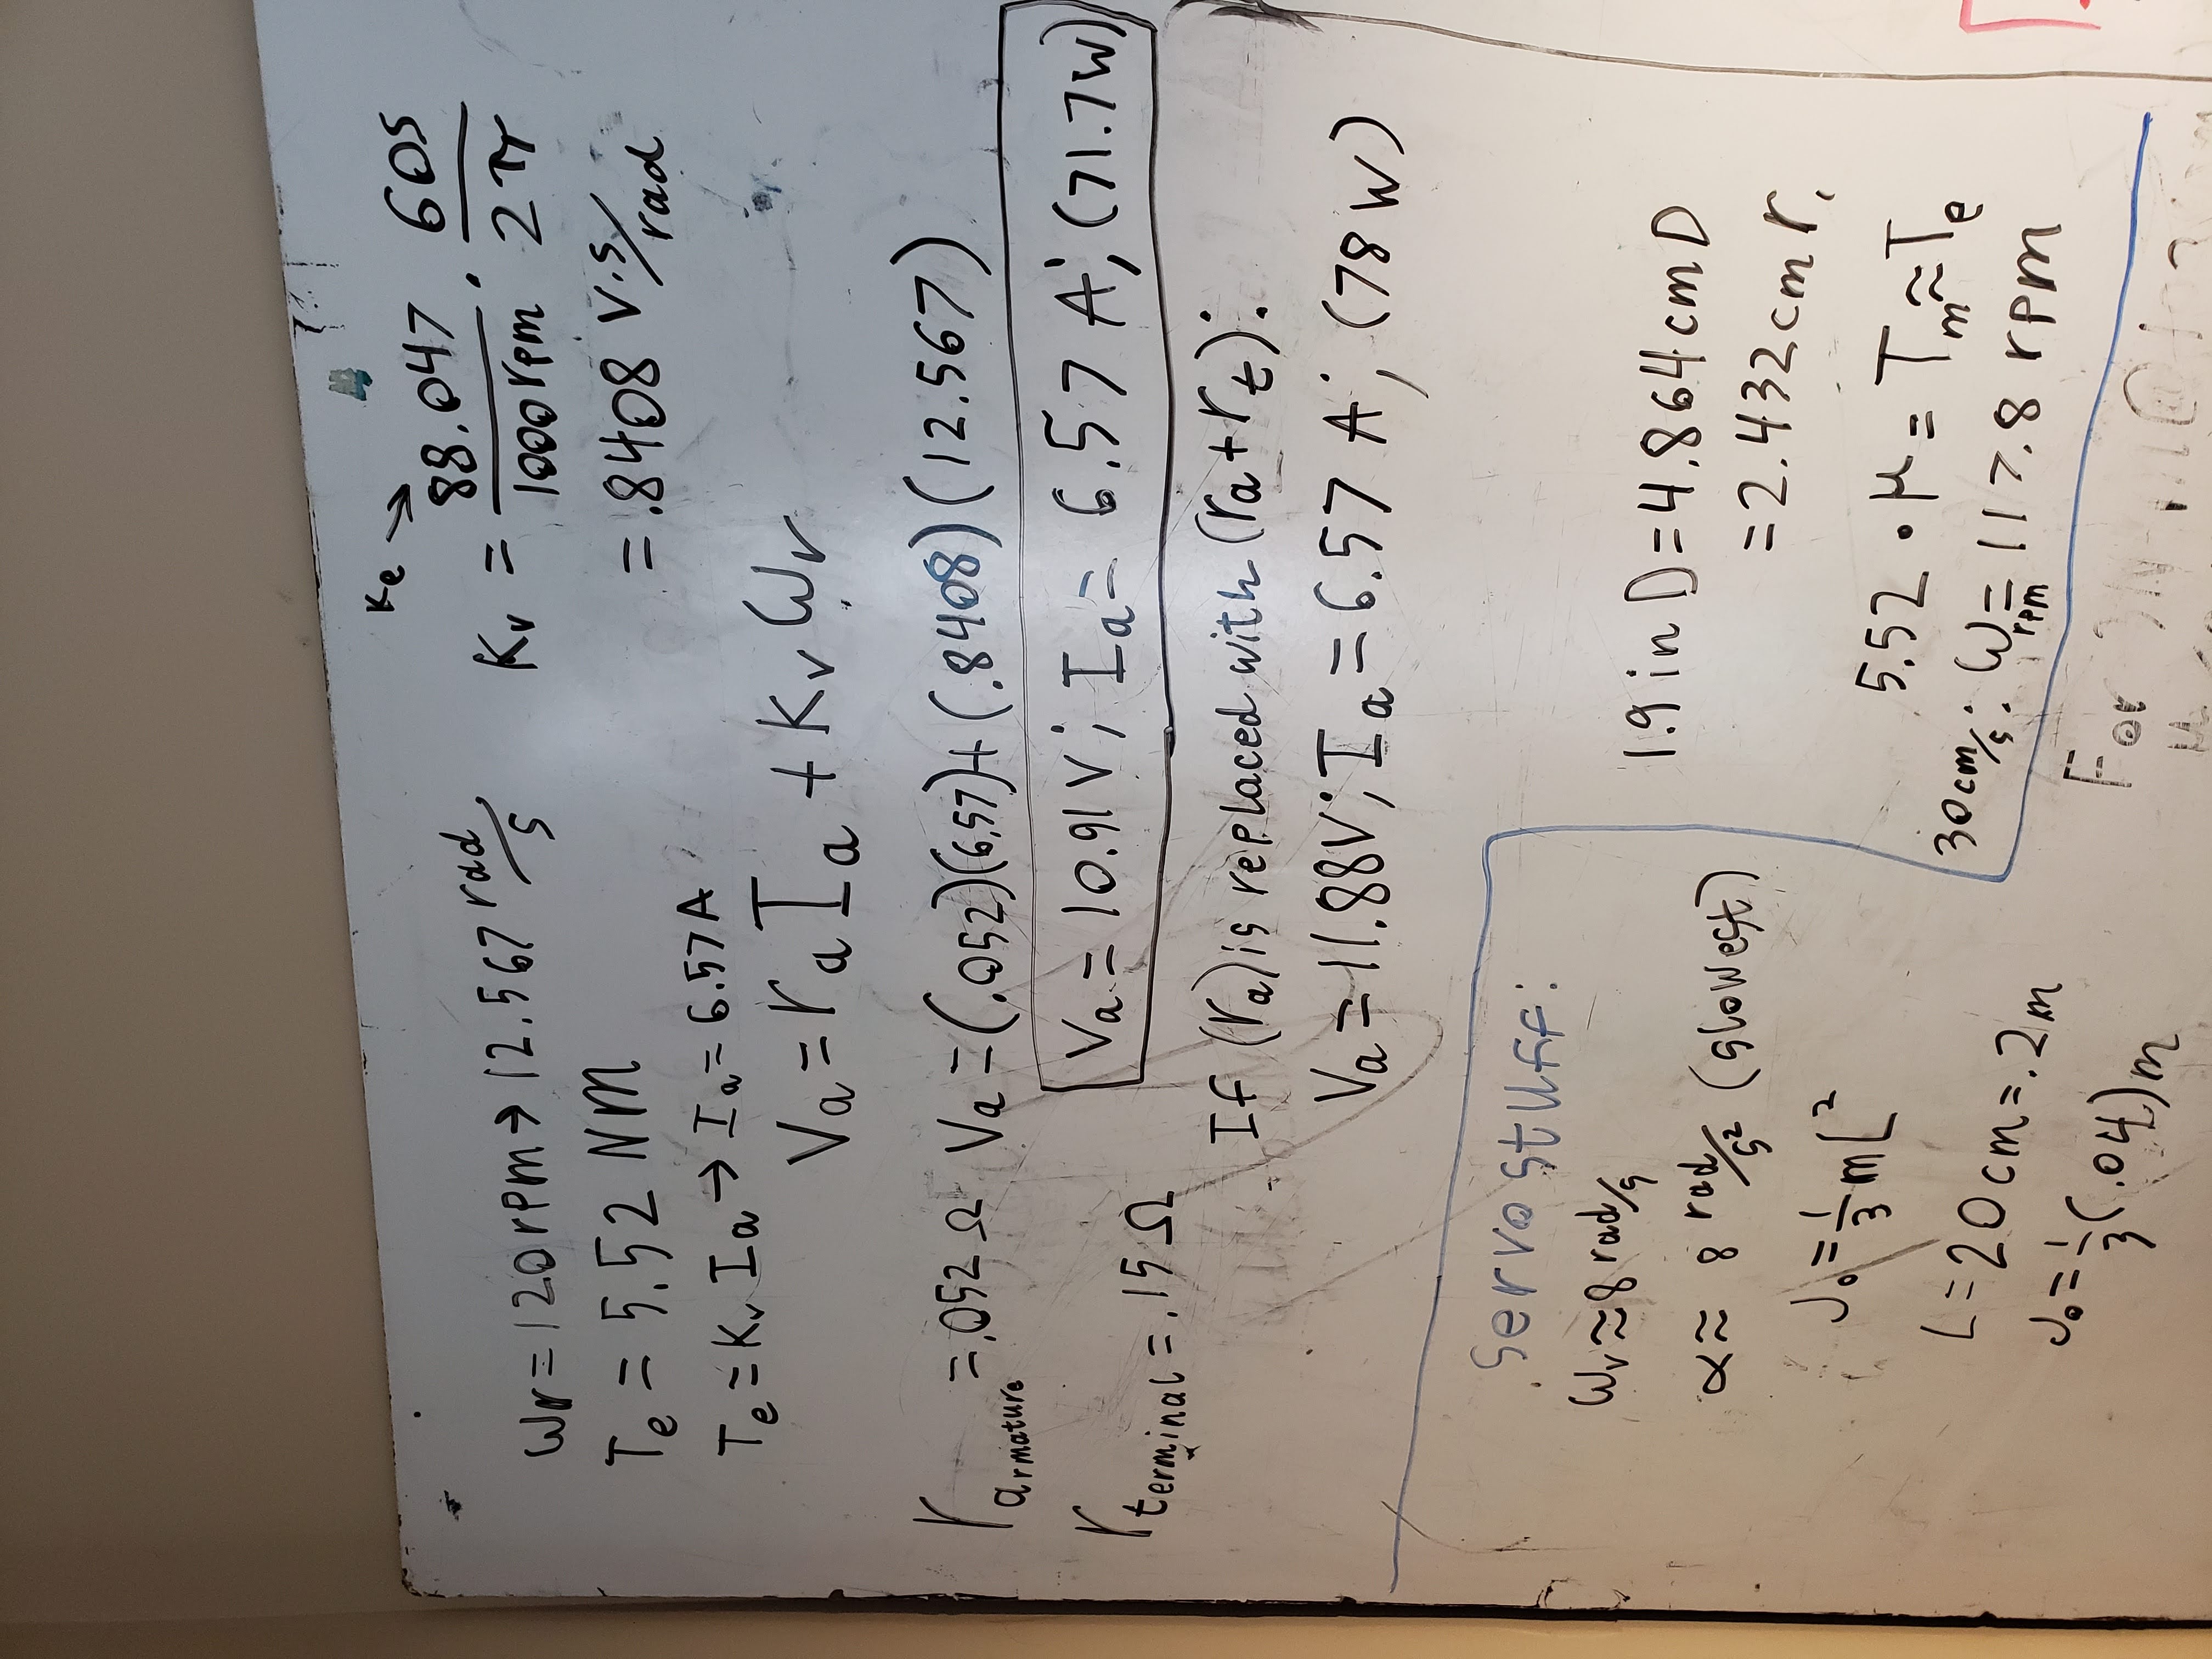 ωr = 120 rpm → 12.567 rad/s
Te = 5.52 NM
Te = Kv Ia → Ia = 6.57 A
Ke →
Kv = 88.047/1000rpm · 60s/2π
= .8408 V·s/rad
Va = ra Ia + Kv ωr
rarmature = .052 Ω
Va = (.052)(6.57) + (.8408)(12.567)
Va = 10.91 V; Ia = 6.57 A; (71.7W)
rterminal = .15 Ω
If (ra) is replaced with (ra + rt):
Va = 11.88V; Ia = 6.57 A; (78 W)
Servo stuff:
ωr ≈ 8 rad/s
α ≈ 8 rad/s² (slowest)
Jo = 1/3 mL²
L = 20 cm = .2m
Jo = 1/3 (.04)m
1.9 in D = 4.864 cm D
= 2.432 cm r.
5.52 · μ = Tm ≈ Te
30 cm/s: ωrpm = 117.8 rpm
For